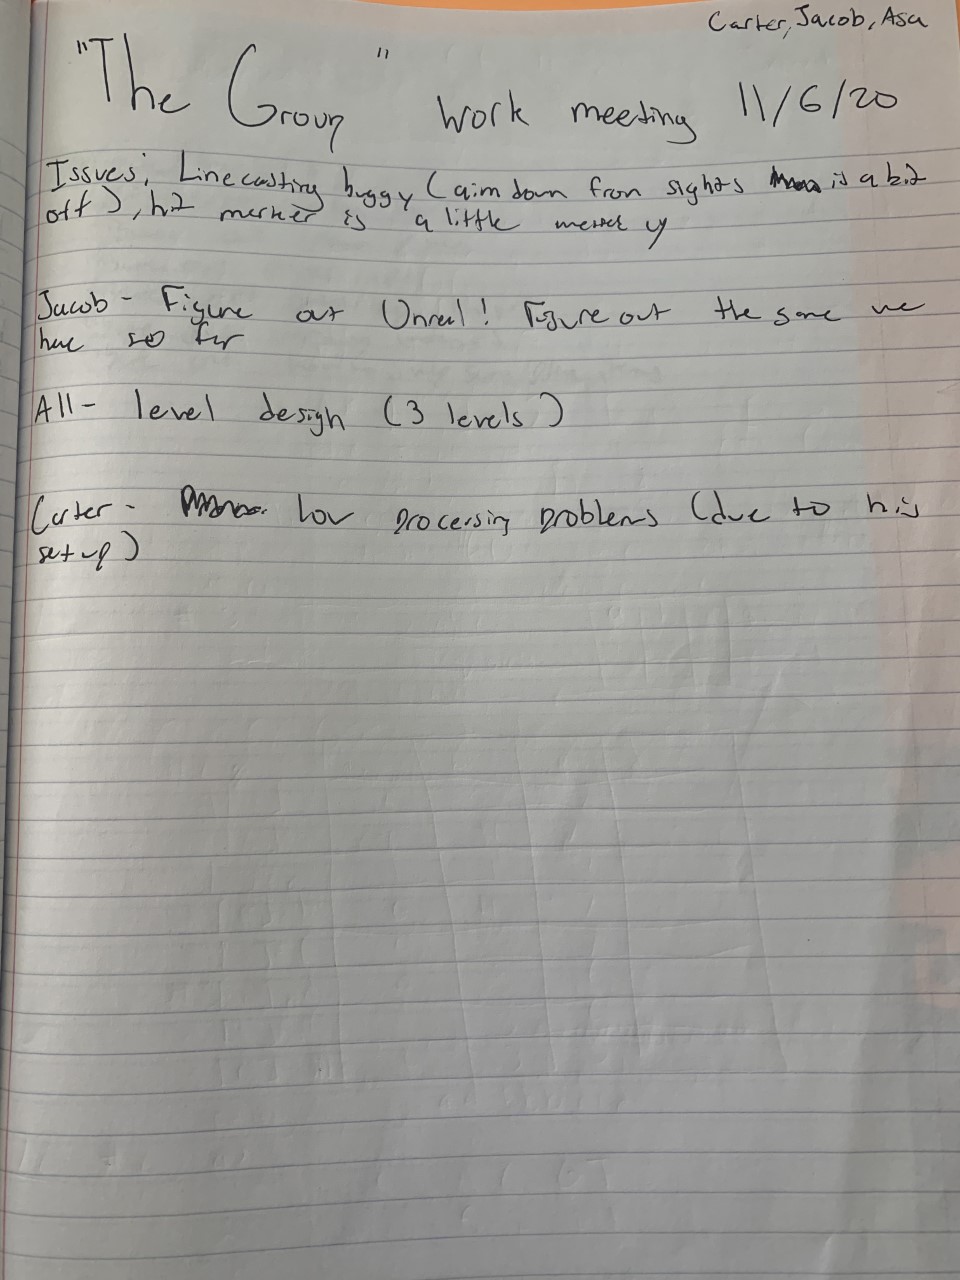 Carter, Jacob, Asa
"The Group" work meeting 11/6/20
Issues: Linecasting buggy (aim down from sights is a bit
off), hit marker is a little messy
Jacob - Figure out Unreal! Figure out the game we
have so far
All - level design (3 levels)
Carter - low processing problems (due to his
setup)